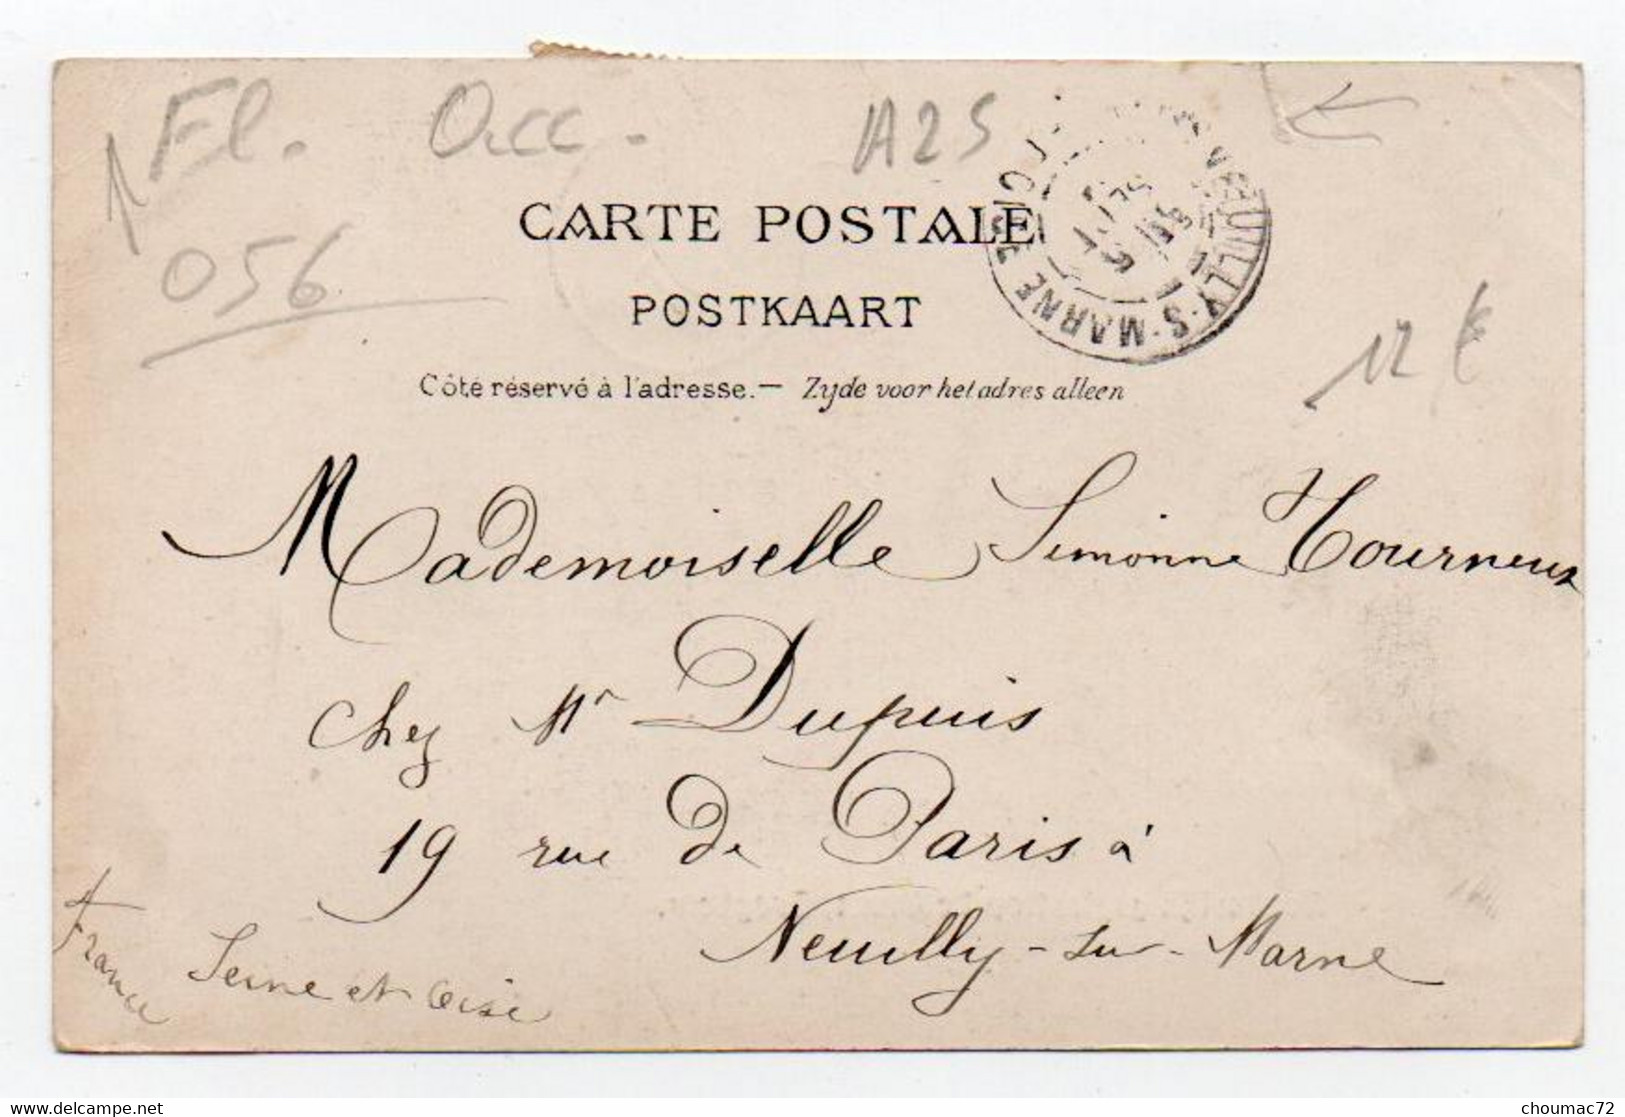 Fl. Occ. A25
056
CARTE POSTALE
POSTKAART
Côté réservé à l'adresse.— Zyde voor het adres alleen
NEUILLY-S-MARNE
12 €
Mademoiselle Simonne Tourneux
chez Mr Dupuis
19 rue de Paris à
Neuilly-sur-Marne
Seine et Oise
France
choumac72